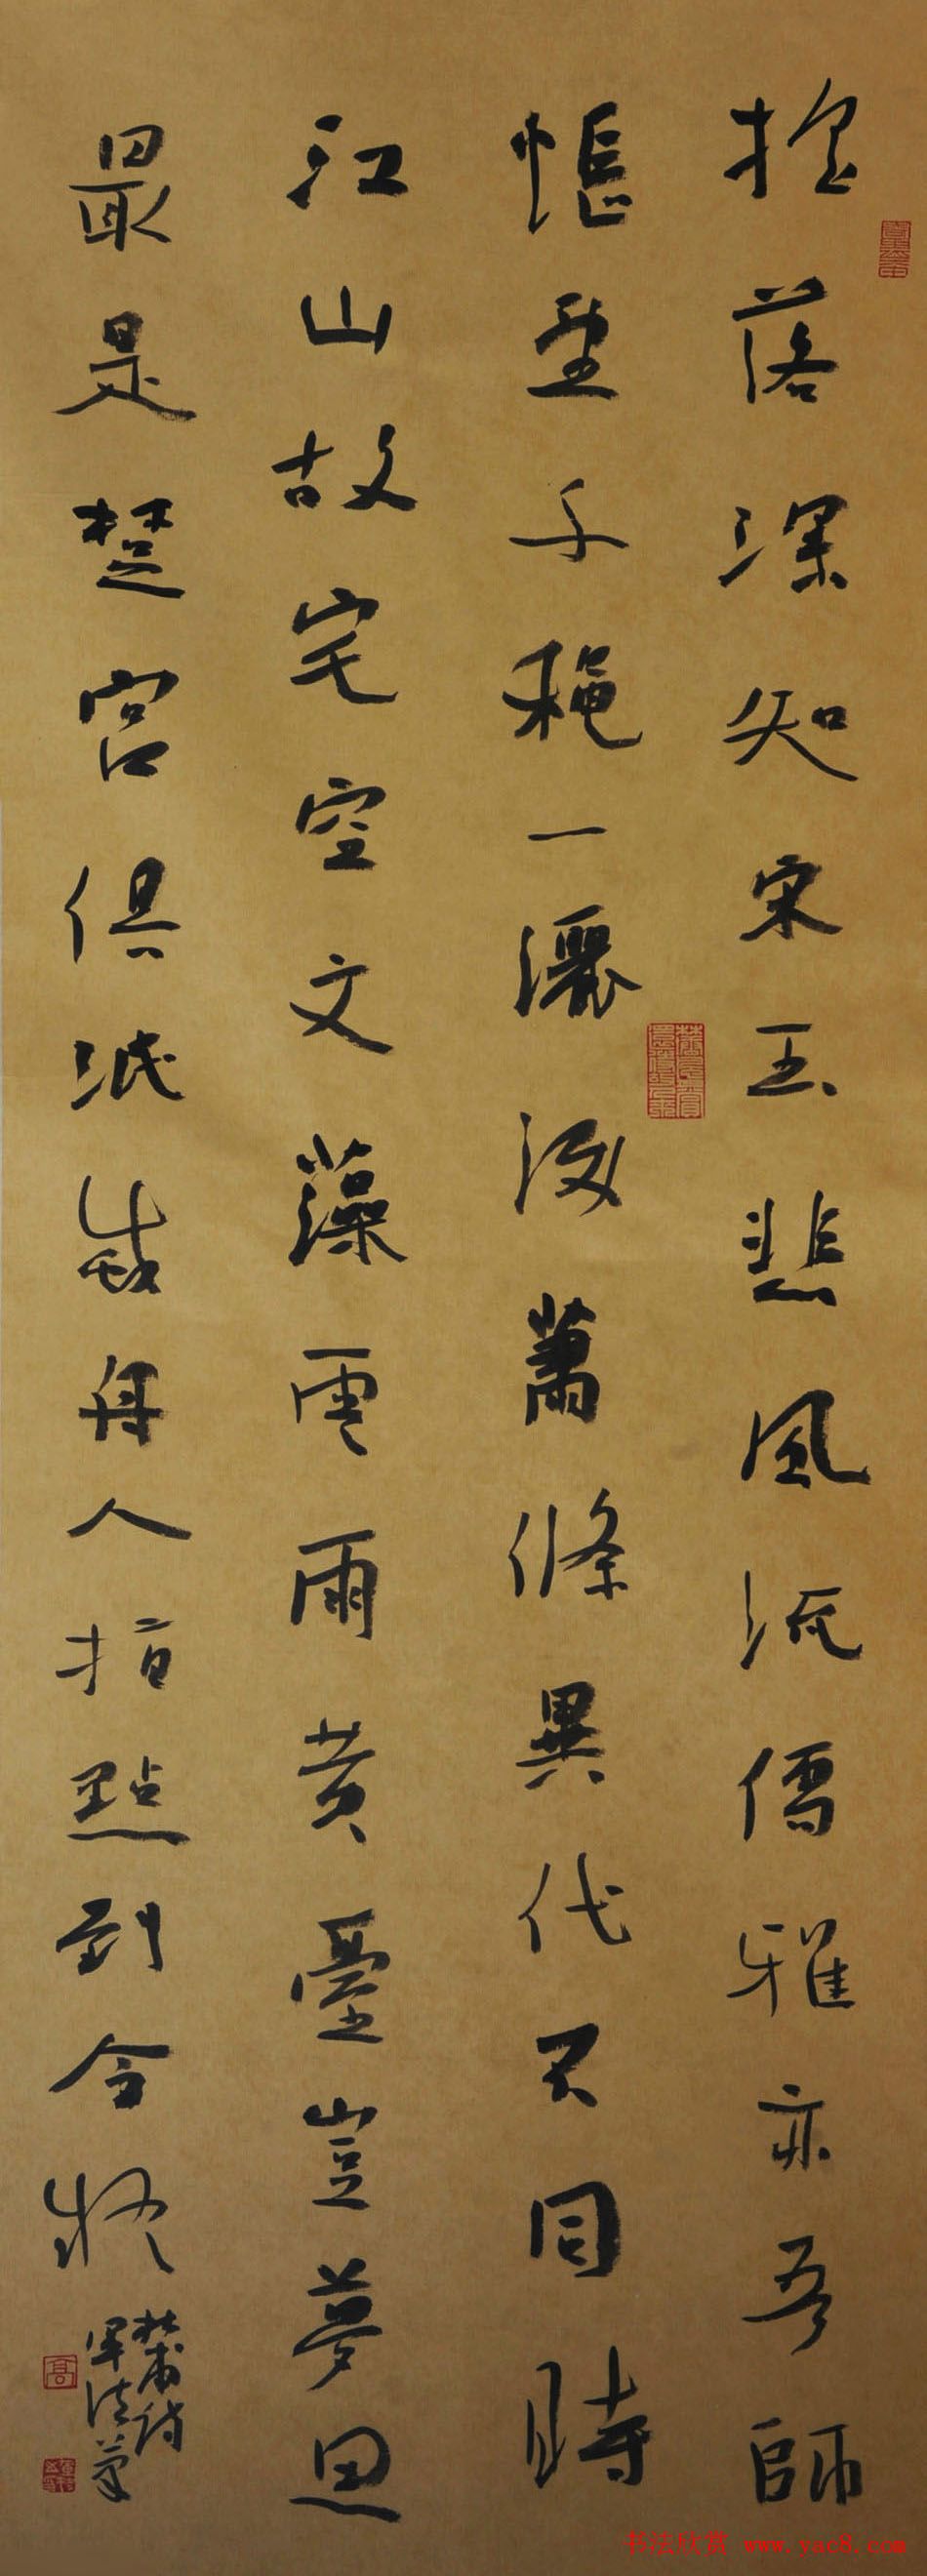 摇落深知宋玉悲風流儒雅亦吾師
悵望千秋一灑淚蕭條異代不同時
江山故宅空文藻雲雨荒臺豈夢思
最是楚宮俱泯滅舟人指點到今疑
杜甫詩
軍法筆
高
书法欣赏 www.yac8.com